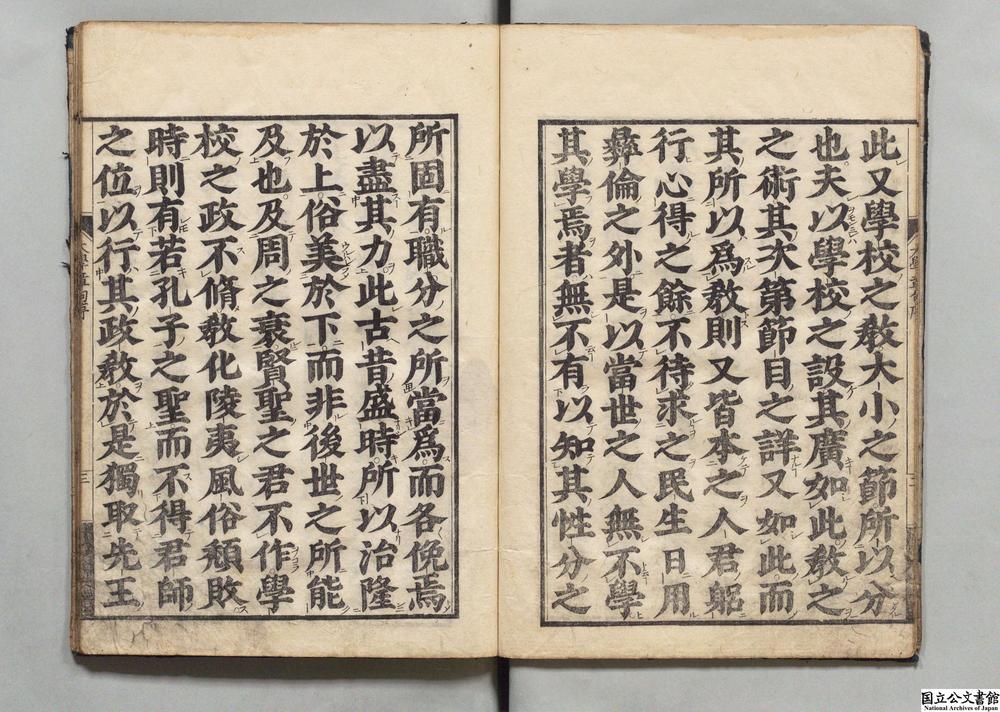 此又學校之敎大小之節所以分
也夫以學校之設其廣如此敎之
之術其次第節目之詳又如此而
其所以爲敎則又皆本之人君躬
行心得之餘不待求之民生日用
彝倫之外是以當世之人無不學
其學焉者無不有以知其性分之
所固有職分之所當爲而各俛焉
以盡其力此古昔盛時所以治隆
於上俗美於下而非後世之所能
及也及周之衰賢聖之君不作學
校之政不脩敎化陵夷風俗頽敗
時則有若孔子之聖而不得君師
之位以行其政敎於是獨取先王
国立公文書館
National Archives of Japan